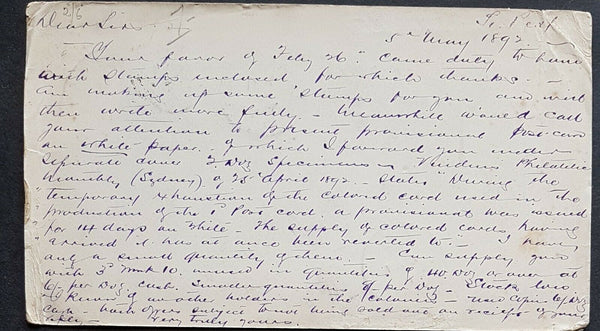 2/6
Dear Sirs
5th May 1892
Your favor of Feby 26th came duly to hand
with Stamps inclosed for which thanks. —
Am making up some Stamps for you and will
then write more fully. — Meanwhile would call
your attention to present provisional Post-card
on white paper. of which I forward you under
Separate cover Doz Specimens. Vindin's Philatelic
Monthly (Sydney) of 25th April 1892. — States "During the
temporary exhaustion of the colored card used in the
production of the 1d Post card. a provisional was issued
for 14 days on white — The supply of colored cards, having
arrived it has at once been reverted to. — I have
only a small quantity of them. — Can supply you
with unused in quantities of Doz or over at
per Doz. Cash. Smaller quantities per Doz — Stock
of no other holders in the colonies — used copies Doz
Cash. — both offers subject to not being sold out on receipt of your
Very truly yours.